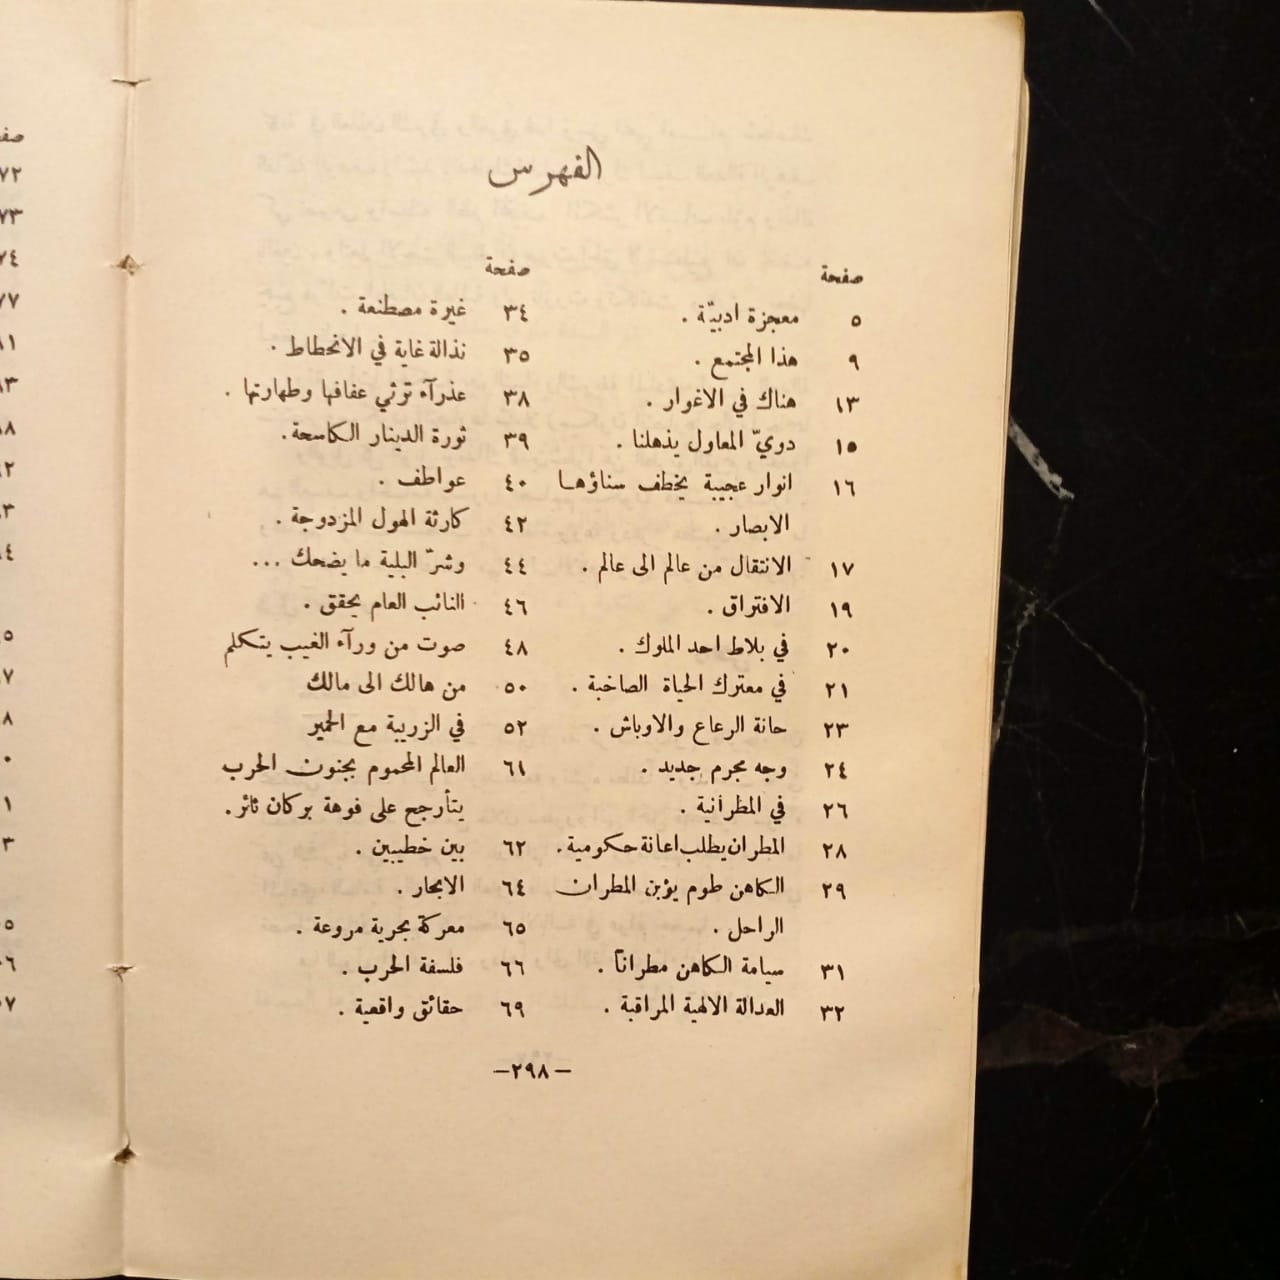 الفهرس
صفحة
٥ معجزة ادبيّة .
٩ هذا المجتمع .
١٣ هناك في الاغوار .
١٥ دويّ المعاول يذهلنا .
١٦ انوار عجيبة يخطف سناؤها
الابصار .
١٧ الانتقال من عالم الى عالم .
١٩ الافتراق .
٢٠ في بلاط احد الملوك .
٢١ في معترك الحياة الصاخبة .
٢٣ حانة الرعاع والاوباش .
٢٤ وجه مجرم جديد .
٢٦ في المطرانية .
٢٨ المطران يطلب اعانة حكومية .
٢٩ الكاهن طوم يؤبن المطران
الراحل .
٣١ سيامة الكاهن مطراناً .
٣٢ العدالة الالهية المراقبة .
صفحة
٣٤ غيرة مصطنعة .
٣٥ نذالة غاية في الانحطاط .
٣٨ عذرآء ترثي عفافها وطهارتها .
٣٩ ثورة الدينار الكاسحة .
٤٠ عواطف .
٤٢ كارثة الهول المزدوجة .
٤٤ وشرّ البلية ما يضحك ...
٤٦ النائب العام يحقق .
٤٨ صوت من ورآء الغيب يتكلم
٥٠ من هالك الى مالك
٥٢ في الزريبة مع الحمير
٦١ العالم المحموم بجنون الحرب
يتأرجح على فوهة بركان ثائر .
٦٢ بين خطيبين .
٦٤ الابحار .
٦٥ معركة بحرية مروعة .
٦٦ فلسفة الحرب .
٦٩ حقائق واقعية .
–٢٩٨–